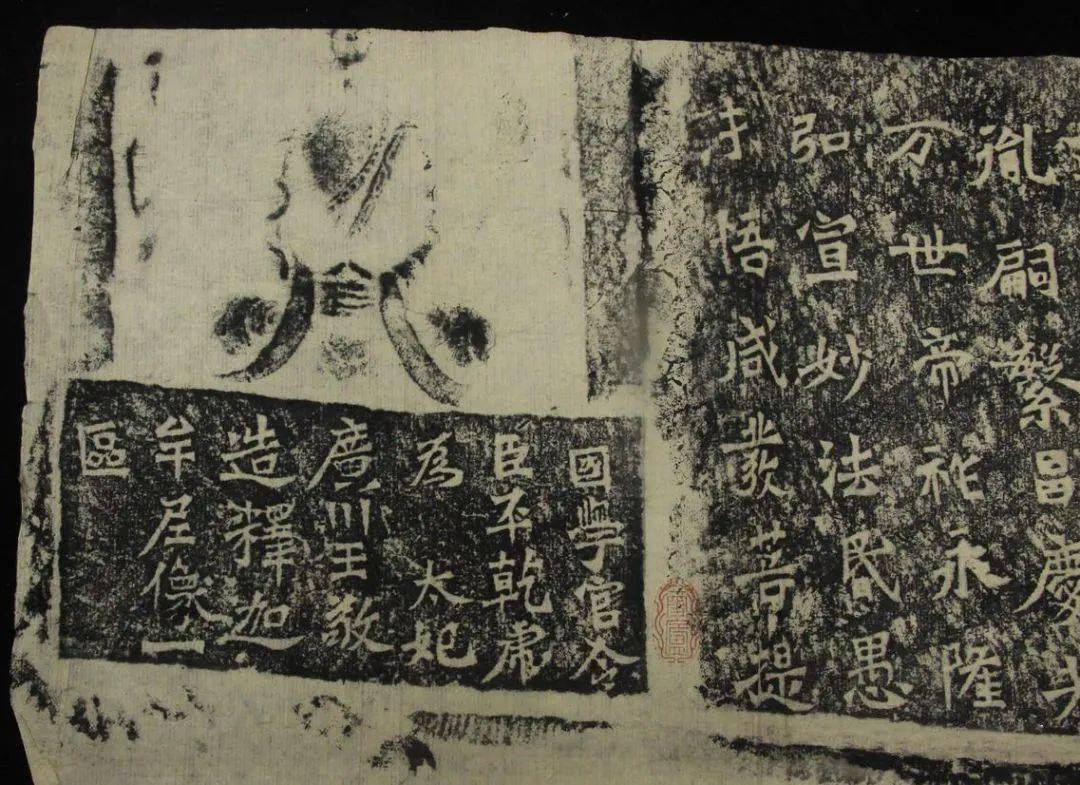 胤嗣繁昌慶光
万世帝祚永隆
弘宣妙法昬愚
未悟咸發菩提
國學官令
臣平乾虎
為 太妃
廣川王敬
造釋迦
牟尼像一
區